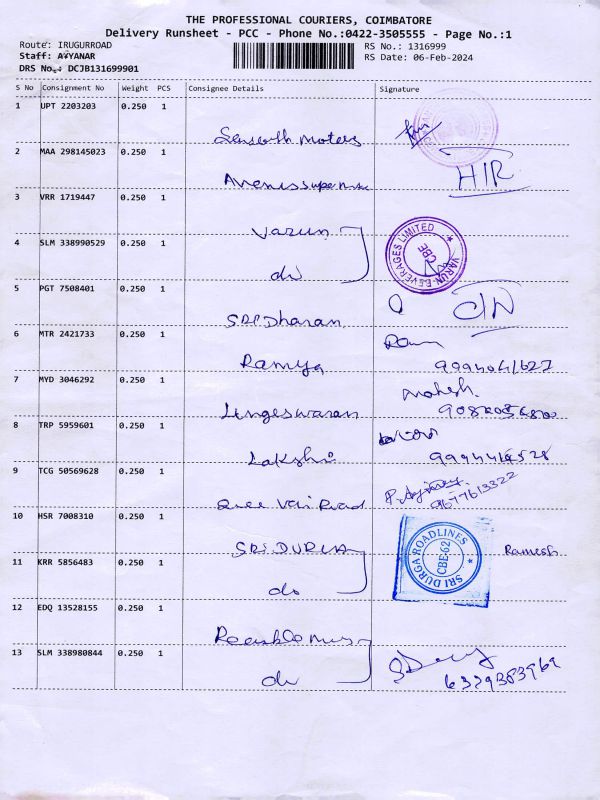 THE PROFESSIONAL COURIERS, COIMBATORE
Delivery Runsheet - PCC - Phone No.:0422-3505555 - Page No.:1
Route: IRUGURROAD
RS No.: 1316999
Staff: AYYANAR
RS Date: 06-Feb-2024
DRS No.: DCJB131699901
S No Consignment No Weight PCS Consignee Details Signature
1 UPT 2203203 0.250 1
Motors
2 MAA 298145023 0.250 1
H/R
3 VRR 1719447 0.250 1
Varun
VARUN BEVERAGES LIMITED
CBE
4 SLM 338990529 0.250 1
do
5 PGT 7508401 0.250 1
SRI Dharan
6 MTR 2421733 0.250 1
Ramya
7 MYD 3046292 0.250 1
Mahesh
Lingeswaran
8 TRP 5959601 0.250 1
Lakshmi
9 TCG 50569628 0.250 1
9677613322
Road
10 HSR 7008310 0.250 1
SRI DURGA
SRI DURGA ROADLINES
CBE-62
Ramesh
11 KRR 5856483 0.250 1
do
12 EDQ 13528155 0.250 1
13 SLM 338980844 0.250 1
do
6329383969